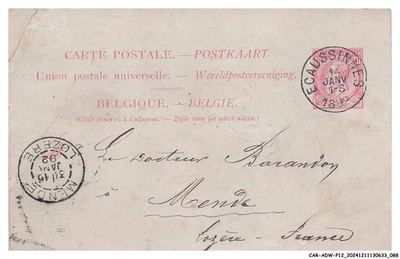 CARTE POSTALE. — POSTKAART
Union postale universelle. — Wereldpostvereeniging.
BELGIQUE. — BELGIE.
(Côté réservé à l'adresse. — Zijde voor het adres alleen.)
ECAUSSINNES
14
JANV
1892
MENDE
LOZÈRE
16
JANV
92
Le docteur Barandon
à Mende
Lozère - France
CAR-ADW-P12_20241211130633_088